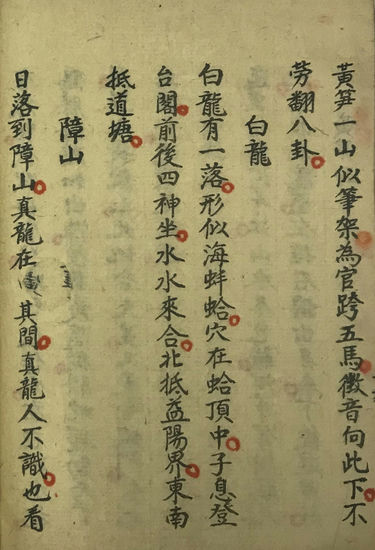 黃笋一山似筆架為官跨五馬徵音向此下不
劳翻八卦
白龍
白龍有一落形似海蚌蛤穴在蛤頂中子息登
台閣前後四神坐水水來合北抵益陽界東南
抵道塘
障山
日落到障山真龍在其間真龍人不識也看